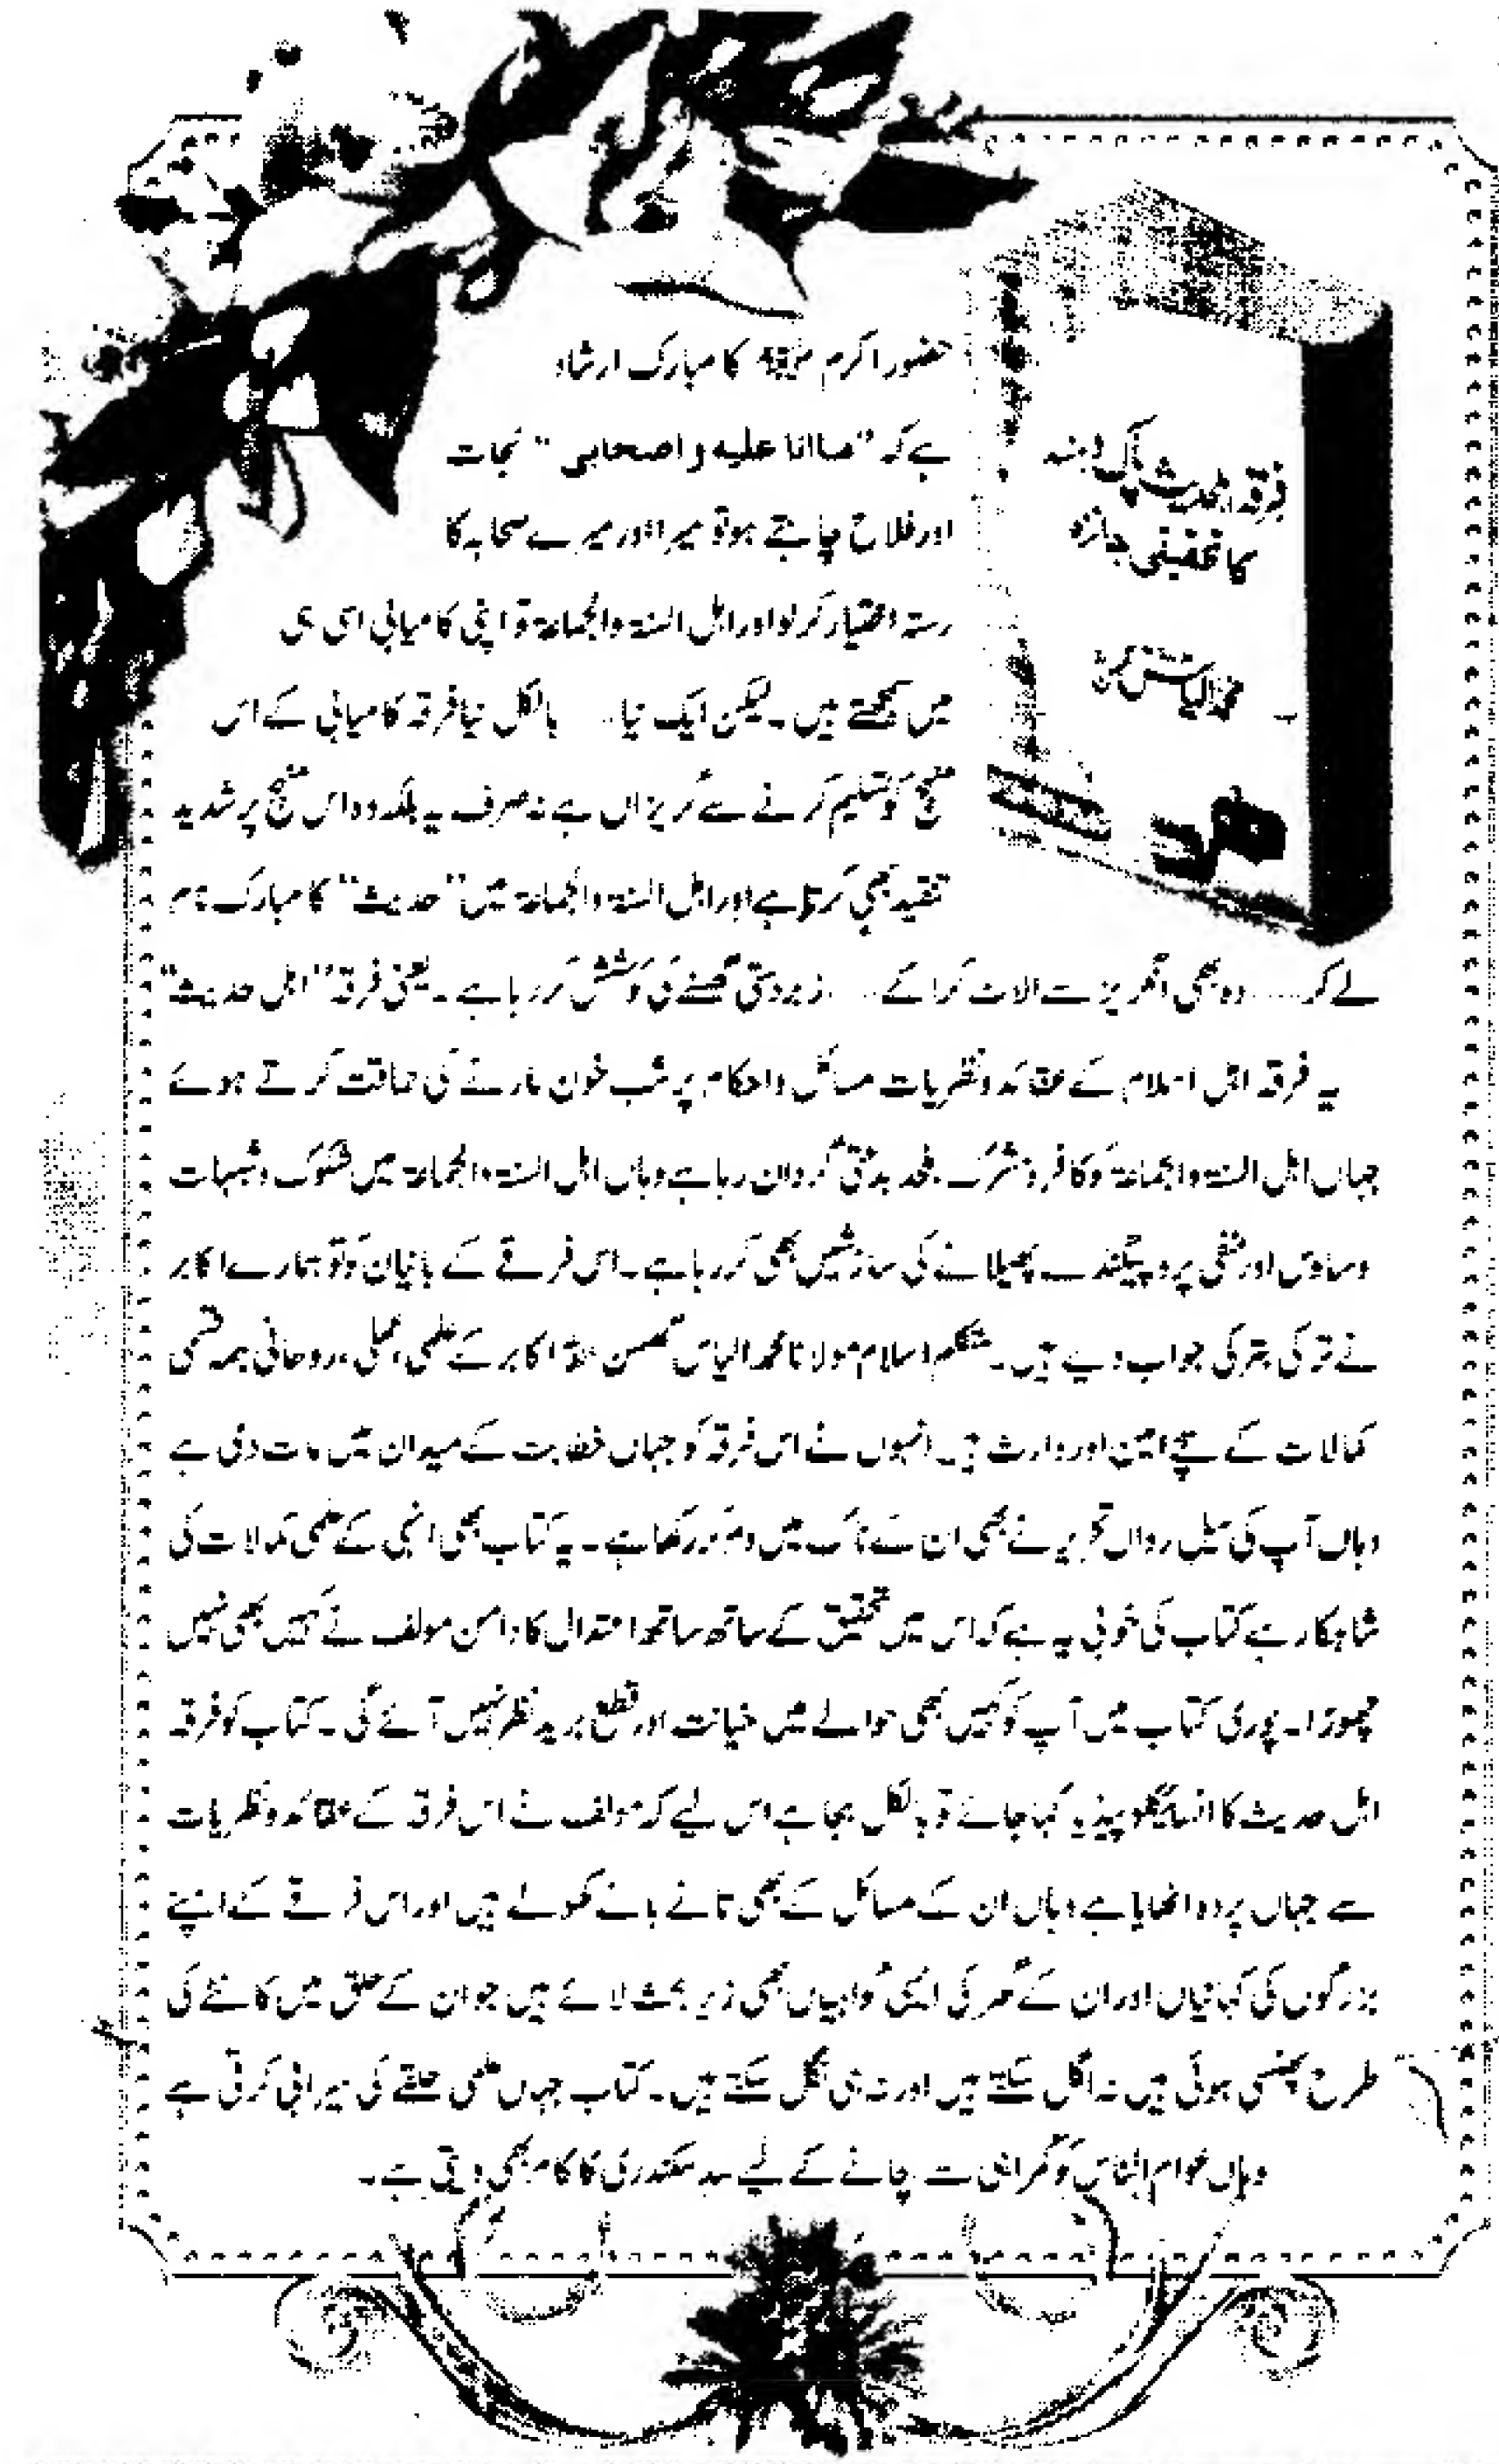 فرقہ اہلحدیث پاک و ہند
کا تحقیقی جائزہ
محمد الیاس گھمن
حضور اکرم ﷺ کا مبارک ارشاد
ہے کہ "ماانا علیہ و اصحابی" نجات
اور فلاح چاہتے ہو تو میرا اور میرے صحابہ کا
رستہ اختیار کرلو اور اہل السنۃ والجماعۃ تو اپنی کامیابی اسی ہی
میں سمجھتے ہیں۔ لیکن ایک نیا... بالکل نیا فرقہ کامیابی کے اس
منہج کو تسلیم کرنے سے گریزاں ہے نہ صرف یہ بلکہ وہ اس منہج پر شدید
تنقید بھی کرتا ہے اور اہل السنۃ والجماعۃ میں "حدیث" کا مبارک نام
لے کر..... وہ بھی انگریز سے الاٹ کرا کے..... زبردستی گھسنے کی کوشش کر رہا ہے۔ یعنی فرقہ "اہل حدیث"
یہ فرقہ اہل اسلام کے عقائد و نظریات مسائل و احکام پر شب خون مارنے کی حماقت کرتے ہوئے
جہاں اہل السنۃ والجماعۃ کو کافر و مشرک ملحد بدعتی گردان رہا ہے وہاں اہل السنۃ والجماعۃ میں شکوک و شبہات
وساوس اور منفی پروپیگنڈے پھیلانے کی سازشیں بھی کر رہا ہے۔ اس فرقے کے بانیان کو تو ہمارے اکابر
نے ترکی بترکی جواب دیے ہیں۔ متکلم اسلام مولانا محمد الیاس گھمن حفظہ اللہ اکابر کے علمی، عملی، روحانی ہمہ قسمی
کمالات کے سچے امین اور وارث ہیں۔ انہوں نے اس فرقہ کو جہاں خطابت کے میدان میں مات دی ہے
وہاں آپ کی سیل رواں تحریر نے بھی ان کے ناک میں دم کر رکھا ہے۔ یہ کتاب بھی انہی کے علمی کمالات کی
شاہکار ہے کتاب کی خوبی یہ ہے کہ اس میں تحقیق کے ساتھ ساتھ اعتدال کا دامن مولف نے کہیں بھی نہیں
چھوڑا۔ پوری کتاب میں آپ کو کہیں بھی حوالے میں خیانت اور قطع برید نظر نہیں آئے گی۔ کتاب کو فرقہ
اہل حدیث کا انسائیکلوپیڈیا کہا جائے تو بالکل بجا ہے اس لیے کہ مولف نے اس فرقہ کے عقائد و نظریات
سے جہاں پردہ اٹھایا ہے وہاں ان کے مسائل کے بھی تانے بانے کھولے ہیں اور اس فرقے کے اپنے
بزرگوں کی کہانیاں اور ان کے گھر کی ایسی گواہیاں بھی زیر بحث لائے ہیں جو ان کے حلق میں کانٹے کی
طرح پھنسی ہوئی ہیں نہ اگل سکتے ہیں اور نہ ہی نگل سکتے ہیں۔ کتاب جہاں علمی حلقے کی سیرابی کرتی ہے
وہاں عوام الناس کو گمراہی سے بچانے کے لیے سد سکندری کا کام بھی دیتی ہے۔